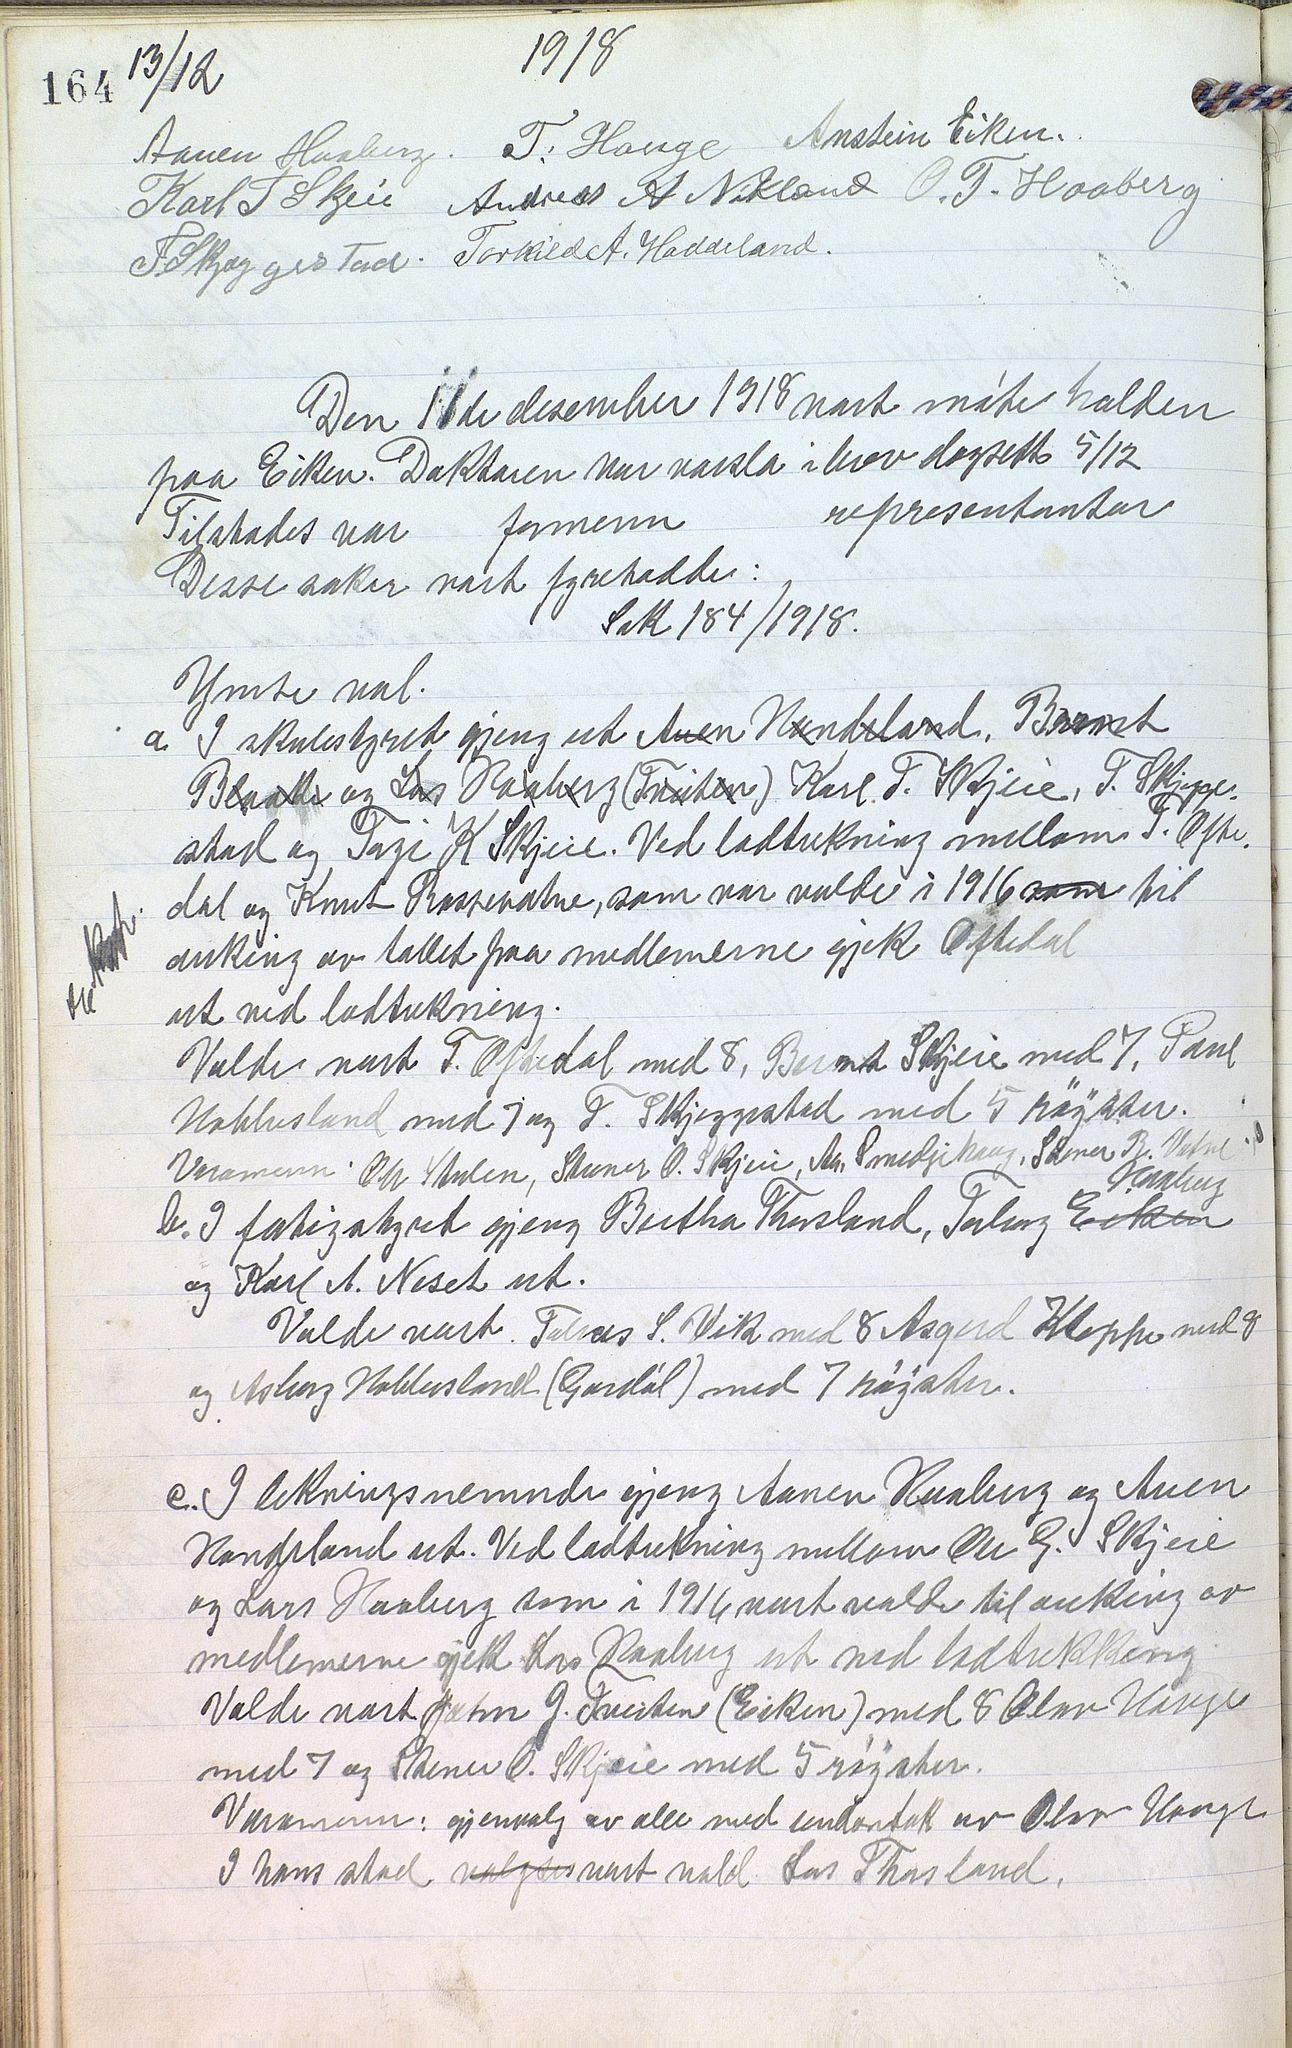 164 13/12 1918
Aanen Haaberg. T. Hauge Anstein Eiken.
Karl T Skjeie Andreas A Nikland O. T. Haaberg
T Skjeggestad. Torkild A. Haddeland.
Den 11de desember 1918 vart möte halden
paa Eiken. Doktaren var varsla i brev dagsett 5/12
Tilstades var formenn representantar
Desse saker vart fyrehadde:
Sak 184/1918.
Ymse val.
a. I skulestyret gjeng ut Auen Hundsland, Bernt
Blaalie og Lars Haaberg (Tveiten) Karl T. Skjeie, T. Skjegge-
stad og Terje K Skjeie. Ved lodtrekning mellom T. Ofte-
dal og Knut Rossevatne, som var valde i 1916 som til
auking av tallet paa medlemerne gjek Oftedal
ut ved lodtrekning.
Valde vart T. Oftedal med 8, Bernt Skjeie med 7, Paul
Hobbesland med 7 og T. Skjeggestad med 5 röyster.
Varamenn: Ole Stulen, Stener O. Skjeie, Aa. Smedjehaug, Stener B. Vatne
Haaberg
b. I fatigstyret gjeng Bertha Thorsland, Torborg Eiken
og Karl A. Neset ut.
Valde vart Tobias S. Vik med 8 Asgerd Kleppe med 8
og Asborg Hobbesland (Gardöl) med 7 röyster.
c. I likningsnemnde gjeng Aanen Haaberg og Auen
Hundsland ut. Ved lodtrekning mellom Ole G. Skjeie
og Lars Haaberg som i 1916 vart valde til auking av
medlemerne gjek Lars Haaberg ut ved lodtrekking
Valde vart G. Tveiten (Eiken) med 8 Olav Hauge
med 7 og Stener O. Skjeie med 5 röyster.
Varamenn: gjenvalg av alle med undantak av Olav Hauge
I hans stad valgtes vart vald Lars Thorsland.